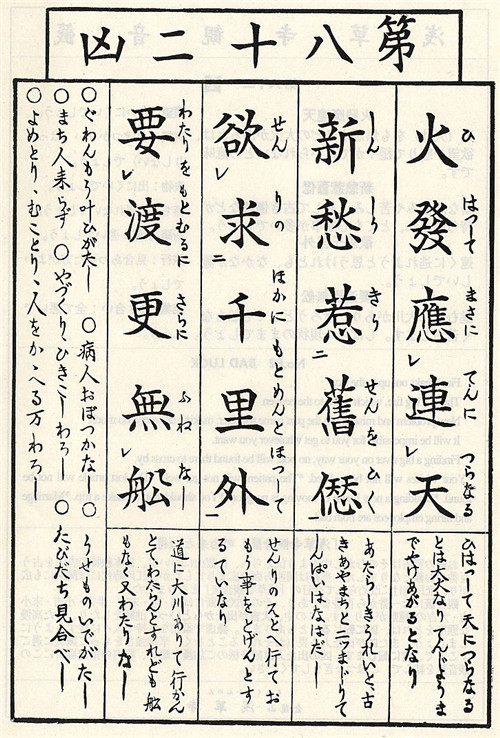 第八十二凶
火發應連天
ひ はつて まさに てんに つらなる
ひはつて天につらなる
とは大火なりてんじようま
でやけあがるとなり
新愁惹舊愆
しん しう きう せんをひく
あたらしきうれいと、古
きあやまちと二ツまじりて
しんぱいはなはだし
欲求千里外
せんりの ほかにもとめんほつして
せんりのスとへ行てお
もう事をとげんとす
るていなり
要渡更無舩
わたりをもとむるに さらに ふねなし
道に大川ありて行かん
とてわたらんとすれども舩
もな又わたしなし
○ぐわんもう叶ひがたし ○病人おぼつかなし ○うせものいでがたし
○まち人来らず ○やづくり、ひきこしわろし ○たびだち見合べし
○よめとり、むことり、人をかゝへる万わろし